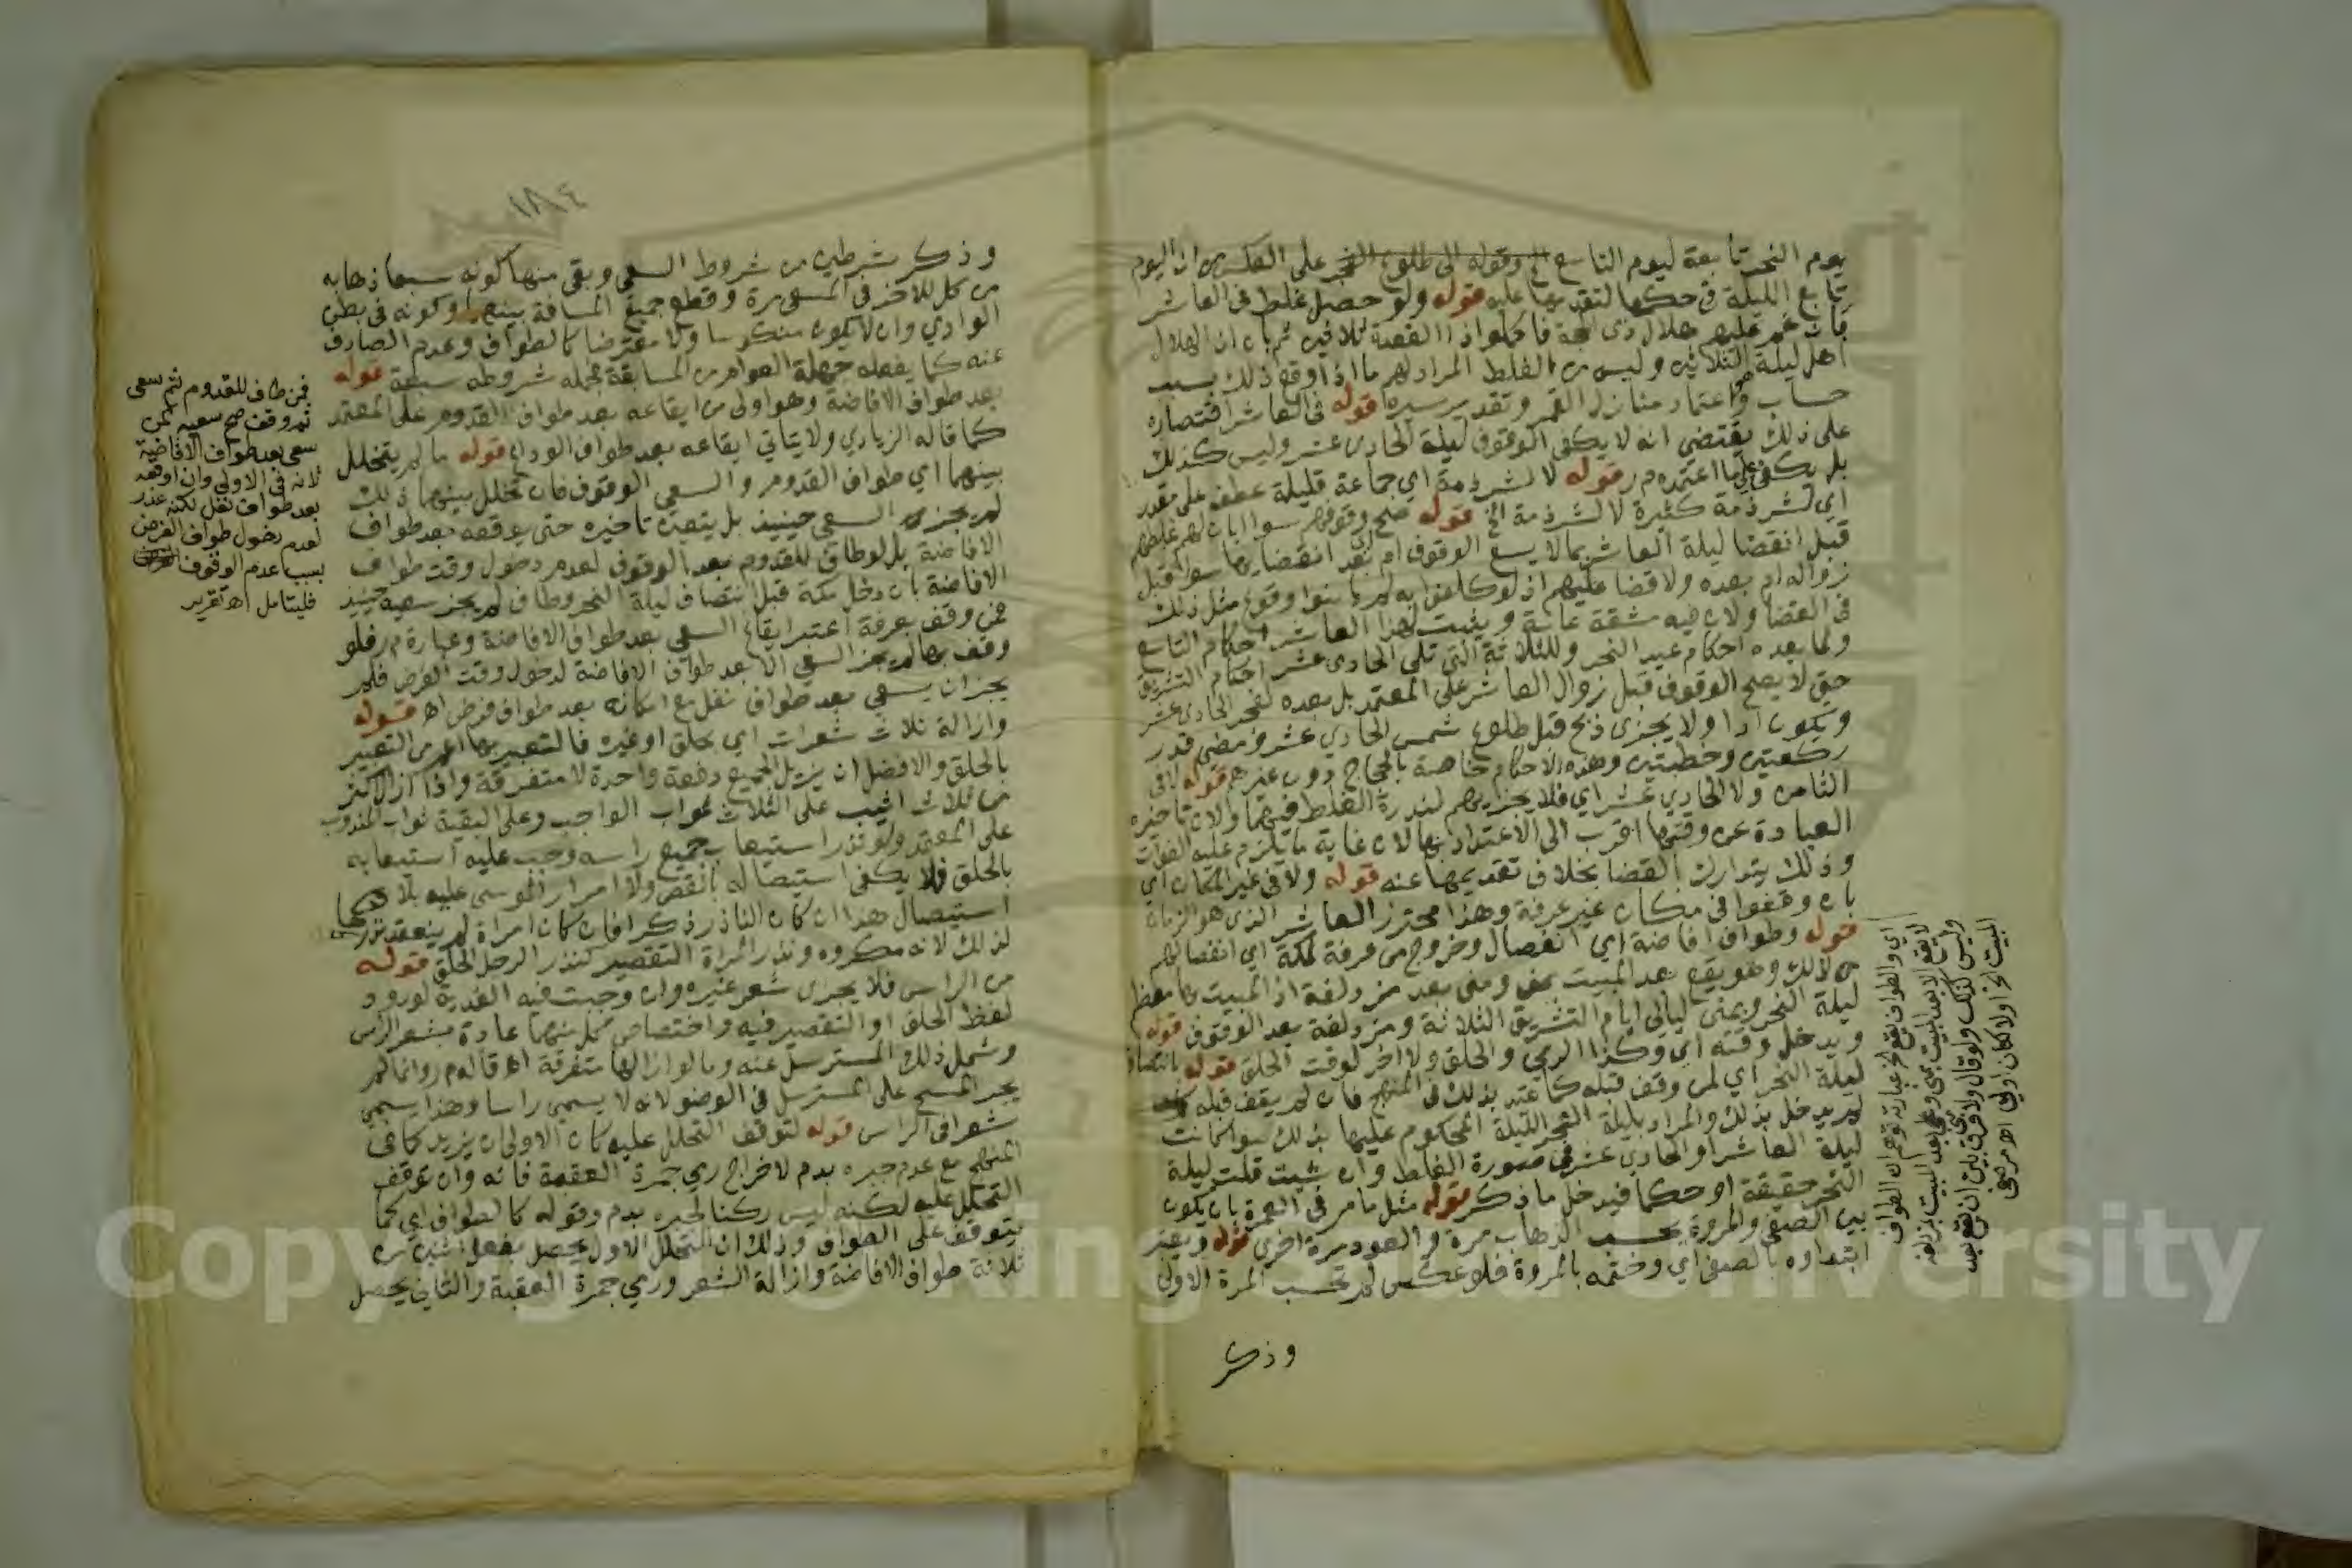 يوم النحر تابعة ليوم التاسع الخ وقوله الى طلوع الفجر على العكس من ان اليوم
تابع الليلة في حكمها لتقديمها عليه قوله ولو حصل غلط في العاشر
فان غم عليهم هلال ذي الحجة فاكملوا ذا القعدة ثلاثين ثم بان ان الهلال
اهل ليلة الثلاثين وليس من الغلط المراد لهم ما اذا وقع ذلك بسبب
حساب واعتماد منازل القمر وتقدير سيره قوله في العاشر اقتصاره
على ذلك يقتضي انه لا يكفي الوقوف ليلة الحادي عشر وليس كذلك
بل يكفي على ما اعتمده م ر قوله لا لشرذمة اي جماعة قليلة عطف على مقدر
اي لشرذمة كثيرة لا لشرذمة الخ قوله صح وقوفهم سوا ابان لهم غلطهم
قبل انقضا ليلة العاشر بما لا يسع الوقوف ام بعد انقضايها سوا قبل
زواله ام بعده ولا قضا عليهم اذ لو كلفوا به لم يامنوا وقوع مثل ذلك
في القضا ولان فيه مشقة عامة ويثبت لهذا العاشر احكام التاسع
ولما بعده احكام عيد النحر وللثلاثة التي تلي الحادي عشر احكام التشريق
حتى لا يصح الوقوف قبل زوال العاشر على المعتمد بل بعده لفجر الحادي عشر
ويكون ادا ولا يجزى ذبح قبل طلوع شمس الحادي عشر ومضى قدر
ركعتين وخطبتين وهذه الاحكام خاصة بالحجاج دون غيرهم قوله لا في
الثامن ولا الحادي عشر اي فلا يجزيهم لندرة الغلط فيهما ولان تاخير
العبادة عن وقتها اقرب الى الاعتداد بها لان غاية ما يلزم عليه الفوات
وذلك يتدارك القضا بخلاف تقديمها عنه قوله ولا في غير المكان اي
بان وقفوا في مكان غير عرفة وهذا محترز العاشر الذي هو الزمان
قوله وطواف افاضة اي انفصال وخروج من عرفة لمكة اي انفصالهم
من ذلك وهو يقع بعد المبيت بمنى ومنى بعد مزدلفة اذ المبيت بها معظم
ليلة النحر وبمنى ليالي ايام التشريق الثلاثة ومزدلفة بعد الوقوف قوله
ويدخل وقته اي وكذا الرمي والحلق ولا اخر لوقت الحلق قوله بانتصاف
ليلة النحر اي لمن وقف قبله كما عبر بذلك في المنهج فان لم يقف قبله
لم يدخل بذلك والمراد بليلة النحر الليلة المحكوم عليها بذلك سوا كانت
ليلة العاشر او الحادي عشر في صورة الغلط وان شيت قلت ليلة
النحر حقيقة او حكما فيدخل ما ذكر قوله مثل ما مر في العمرة بان يكون
بين الصفى والمروة بحسب الذهاب مرة والعود مرة اخرى قوله ويعتبر
ابتداوه بالصفى اي وختمه بالمروة فلو عكس لم تحسب المرة الاولى
وذكر
اي والطواف يقع الخ عبارته توهم ان الطواف
لا يقع الا بعد المبيت بمنى وهي بعد المبيت بمزدلفة
وليس كذلك ولو قال ولا فرق بين ان يقع بعد
المبيت الخ اولا لكان اولى اه مرصفي
١٨٤
وذكر شرطين من شروط السعي وبقي منها كونه سبعا ذهابه
من كل للاخر في المسعى مرة وقطع جميع المسافة بينهما وكونه في بطن
الوادي وان لا يكون منكوسا ولا معترضا كالطواف وعدم الصارف
عنه كما يفعله جهلة العوام من المسابقة فجملة شروطه سبعة قوله
بعد طواف الافاضة وهو اولى من ايقاعه بعد طواف القدوم على المعتمد
كما قاله الزيادي ولا يتاتي ايقاعه بعد طواف الوداع قوله ما لم يتخلل
بينهما اي طواف القدوم والسعي الوقوف فان تخلل بينهما ذلك
لم يجز السعي حينيذ بل يتعين تاخيره حتى يوقعه بعد طواف
الافاضة بل لو طاف للقدوم بعد الوقوف لعدم دخول وقت طواف
الافاضة بان دخل مكة قبل انتصاف ليلة النحر وطاف لم يجز سعيه حينيذ
فمن وقف بعرفة اعتبر ايقاع السعي بعد طواف الافاضة وعبارة م ر فلو
وقف بها لم يجز السعي الا بعد طواف الافاضة لدخول وقت الفرض فلم
يجز ان يسعى بعد طواف نفل مع امكانه بعد طواف فرض اه قوله
وازالة ثلاث شعرات اي بحلق او غيره فالتعبير بها اعم من التعبير
بالحلق والافضل ان يزيل الجميع دفعة واحدة لا متفرقة واذا ازال اكثر
من ثلاث اثيب على الثلاث ثواب الواجب وعلى البقية ثواب المندوب
على المعتمد ولو نذر استيعاب جميع راسه وجب عليه استيعابه
بالحلق فلا يكفي استيصاله بالقص ولا امرار الموسى عليه بلا
استيصال هذا ان كان الناذر ذكرا فان كان امراة لم ينعقد نذرها
لذلك لانه مكروه ونذر المراة التقصير كنذر الرجل الحلق قوله
من الراس فلا يجزى شعر غيره وان وجبت فيه الفدية لورود
لفظ الحلق او التقصير فيه واختصاص كل منهما عادة بشعر الراس
وشمل ذلك المسترسل عنه وما لو ازالها متفرقة اه قاله م ر وانما لم
يجز المسح على المسترسل في الوضو لانه لا يسمى راسا وهذا يسمى
شعرا في الراس قوله لتوقف التحلل عليه كان الاولى ان يزيد كما في
المنهج مع عدم جبره بدم لاخراج رمي جمرة العقبة فانه وان توقف
التحلل عليه لكنه ليس ركنا لجبره بدم وقوله كالطواف اي كما
يتوقف على الطواف وذلك ان التحلل الاول يحصل بفعل اثنين من
ثلاثة طواف الافاضة وازالة الشعر ورمي جمرة العقبة والثاني يحصل
فمن طاف للقدوم ثم سعى
ثم وقف صح سعيه كمن
سعى بعد طواف الافاضة
لانه في الاولى وان اوقعه
بعد طواف نفل لكنه عذر
لعدم دخول طواف الفرض
بسبب عدم الوقوف
فليتامل اه تقرير